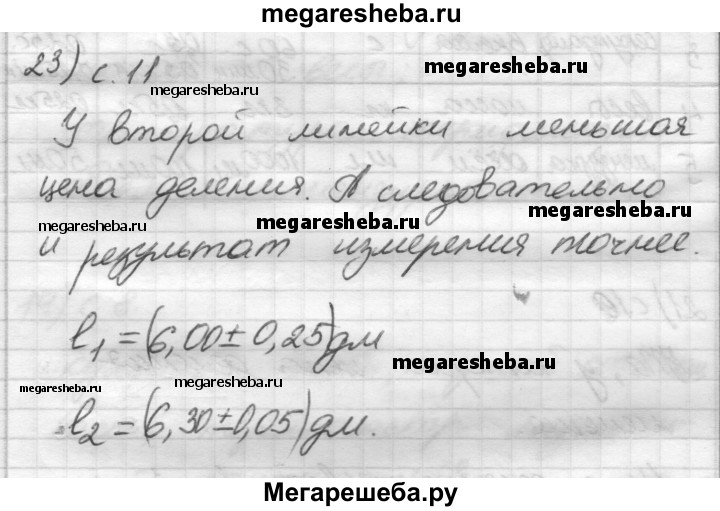 megaresheba.ru
23) с. 11
megaresheba.ru
megaresheba.ru
У второй линейки меньшая
цена деления. А следовательно
megaresheba.ru
megaresheba.ru
megaresheba.ru
и результат измерения точнее.
l₁ = (6,00 ± 0,25) дм
megaresheba.ru
megaresheba.ru
megaresheba.ru
l₂ = (6,30 ± 0,05) дм.
Мегарешеба.ру